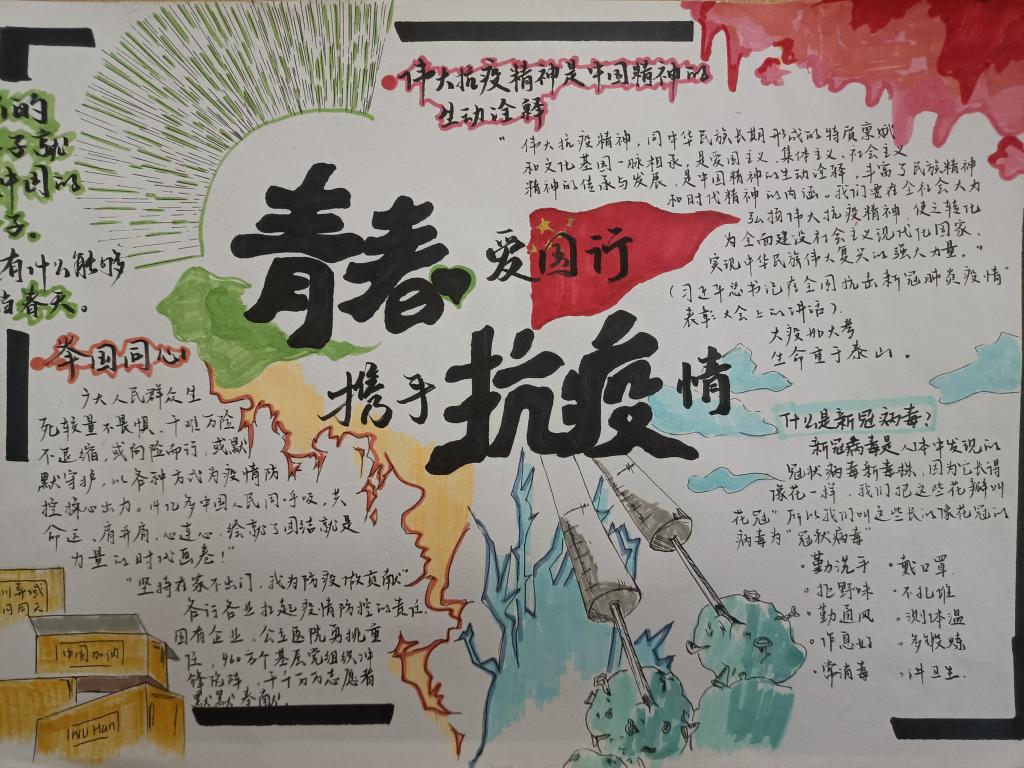 的
中国的
子。
有什么能够
春天。
举国同心
广大人民群众生
死较量不畏惧、千难万险
不退缩,或向险而行,或默
默守护,以各种方式为疫情防
控操心出力。14亿多中国人民同呼吸、共
命运、肩并肩、心连心,绘就了团结就是
力量的时代画卷!"
"坚持在家不出门,我为防疫做贡献"
各行各业扛起疫情防控的责任
国有企业、公立医院勇挑重
位,460万个基层党组织冲
锋陷阵,千千万万志愿者
默默奉献。
同天
中国加油
WU Han
青春
爱国行
携手抗疫情
伟大抗疫精神是中国精神的
生动诠释
"伟大抗疫精神,同中华民族长期形成的特质禀赋
和文化基因一脉相承,是爱国主义、集体主义、社会主义
精神的传承与发展,是中国精神的生动诠释,丰富了民族精神
和时代精神的内涵。我们要在全社会大力
弘扬伟大抗疫精神,使之转化
为全面建设社会主义现代化国家、
实现中华民族伟大复兴的强大力量。"
(习近平总书记在全国抗击新冠肺炎疫情"
表彰大会上的讲话)。
大疫如大考
生命重于泰山。
什么是新冠病毒?
新冠病毒是人体中发现的
冠状病毒新毒株,因为它长得
像花一样,我们把这些花瓣叫
花冠"所以我们叫这些长的像花冠的
病毒为"冠状病毒"
·勤洗手 ·戴口罩
·拒野味 ·不扎堆
·勤通风 ·测体温
·作息好 ·多锻炼
·常消毒 ·讲卫生